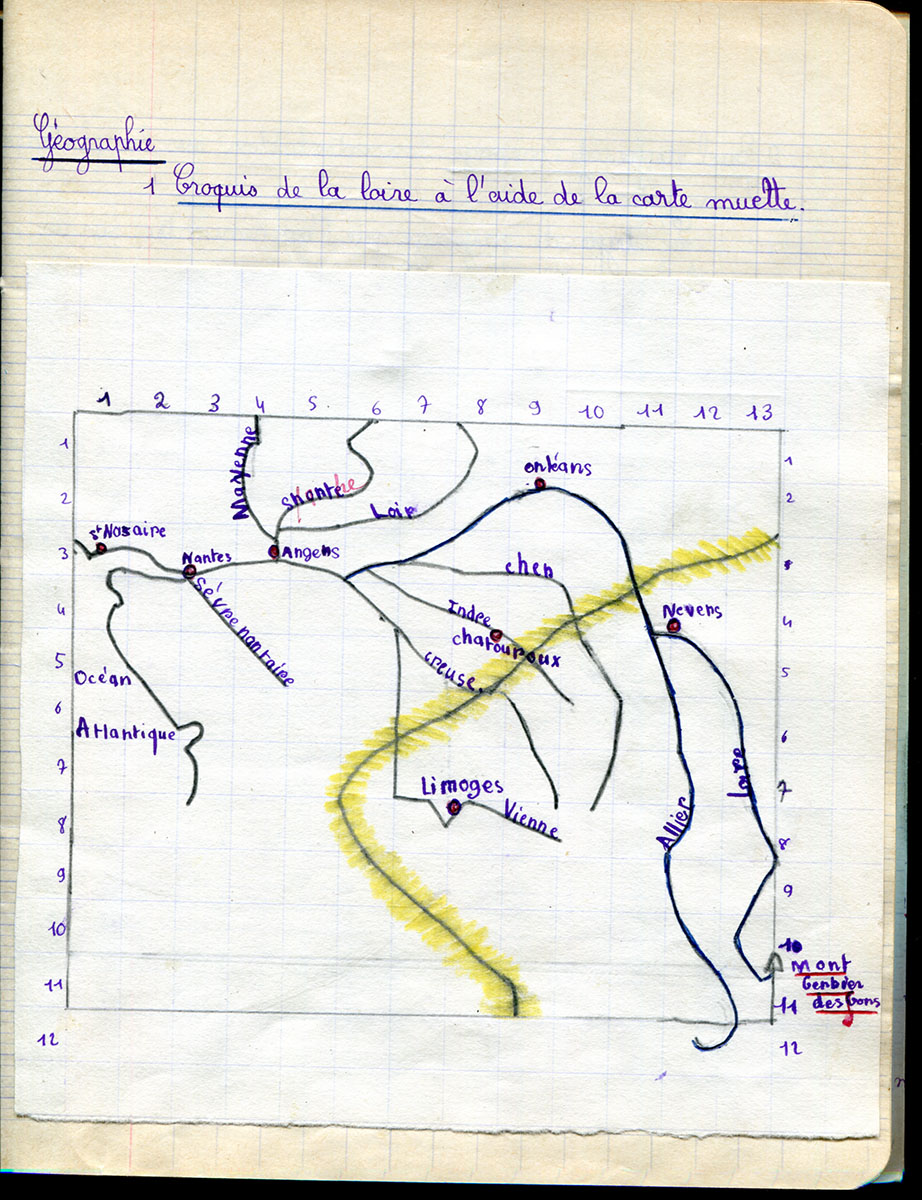 Géographie
1 Croquis de la loire à l'aide de la carte muette.
1 2 3 4 5. 6 7 8 9 10 11 12 13
1
1
2
2
3
4
4
5
5
6
6
7
7
8
8
9
9
10
10
11
11
12
12
Mayenne
Loir
Orléans
St Nazaire
Nantes
Angers
Sèvre nantaise
cher
Indre
chatouroux
creuse
Nevers
Océan
Atlantique
Limoges
Vienne
Allier
Loire
Mont
Gerbier
des Gons